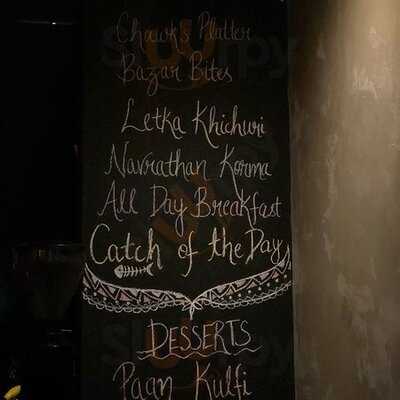 Chowk's Platter
Bazar Bites
Letka Khichuri
Navrathan Korma
All Day Breakfast
Catch of the Day
DESSERTS
Paan Kulfi